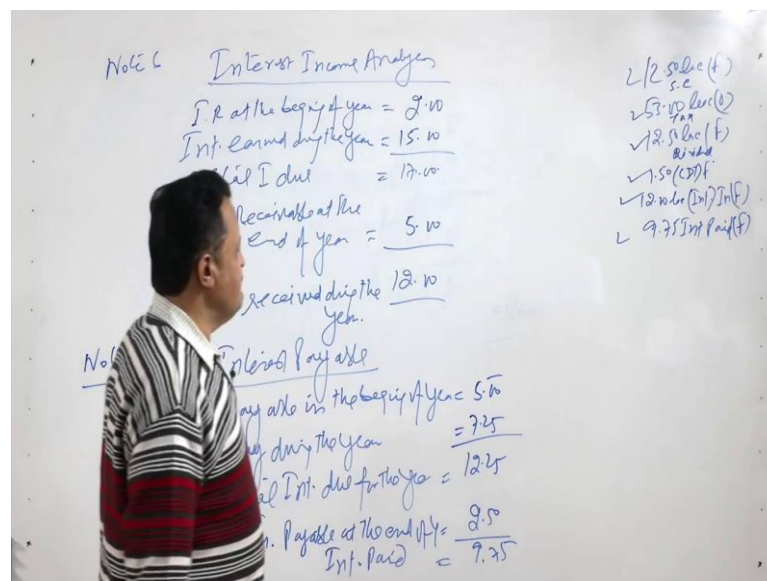 Note 6 Interest Income Analyses
I.R at the begng of year = 2.00
Int. earned durg the year = 15.00
I due = 17.00
Receivable at the
end of year = 5.00
received durg the 12.00
year.
Interest Payable
in the begng of year = 5.00
durg the year = 7.25
Int. due for the year = 12.25
Payable at the end of Y = 2.50
Int. Paid = 9.75
12.50 lac (f)
S.C
53.00 lac (o)
Tax
12.50 lac (f)
1.50 (CDT) f
12.00 lac (Int) In (f)
9.75 Int Paid (f)